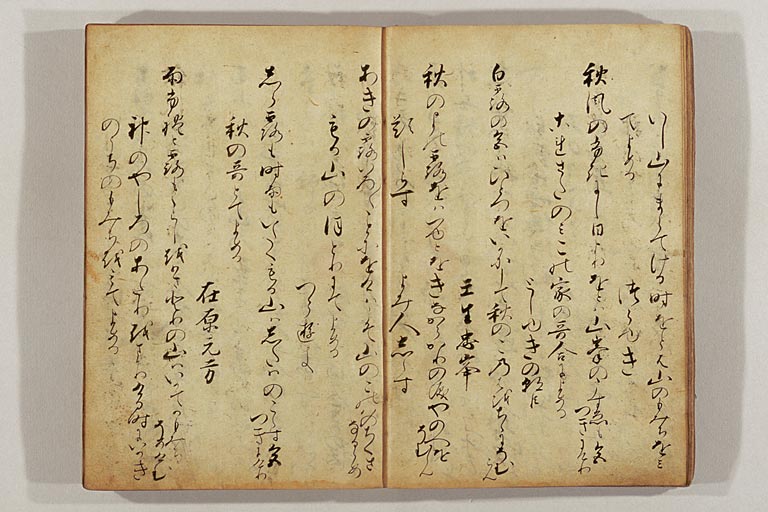 いし山にまうてける時をとは山のもみちをみ
てよめる
つらゆき
秋風のふきにし日よりをとは山峯のこすゑも色
つきにけり
これさたのみこの家の哥合によめる
としゆきの朝臣
白露の色はひとつをいかにして秋のこのはをちゝにそむらん
壬生忠岑
秋のよの露をはつゆとをきなからかりの涙やのへを
そむらん
題しらす よみ人しらす
あきの露いろ〱ことにをけはこそ山のこのはのちくさ
なるらめ
もる山のほとりにてよめる
つらゆき
しら露も時雨もいたくもる山はしたはのこらす色
つきにけり
秋の哥とてよめる
在原元方
雨ふれと露ももらしをかさとりの山はいかてかもみち
そめけむ
神のやしろのあたりをまかりける時にいかき
のうちのもみちをみてよめる